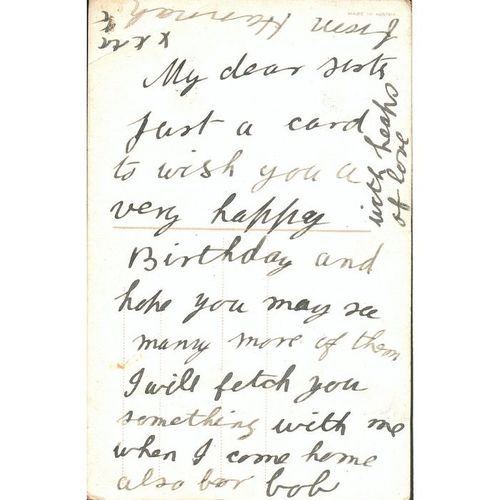 My dear sister
Just a card
to wish you a
very happy
Birthday and
hope you may see
many more of them
I will fetch you
something with me
when I come home
also for bob
with heaps
of love
from Hannah
x x x